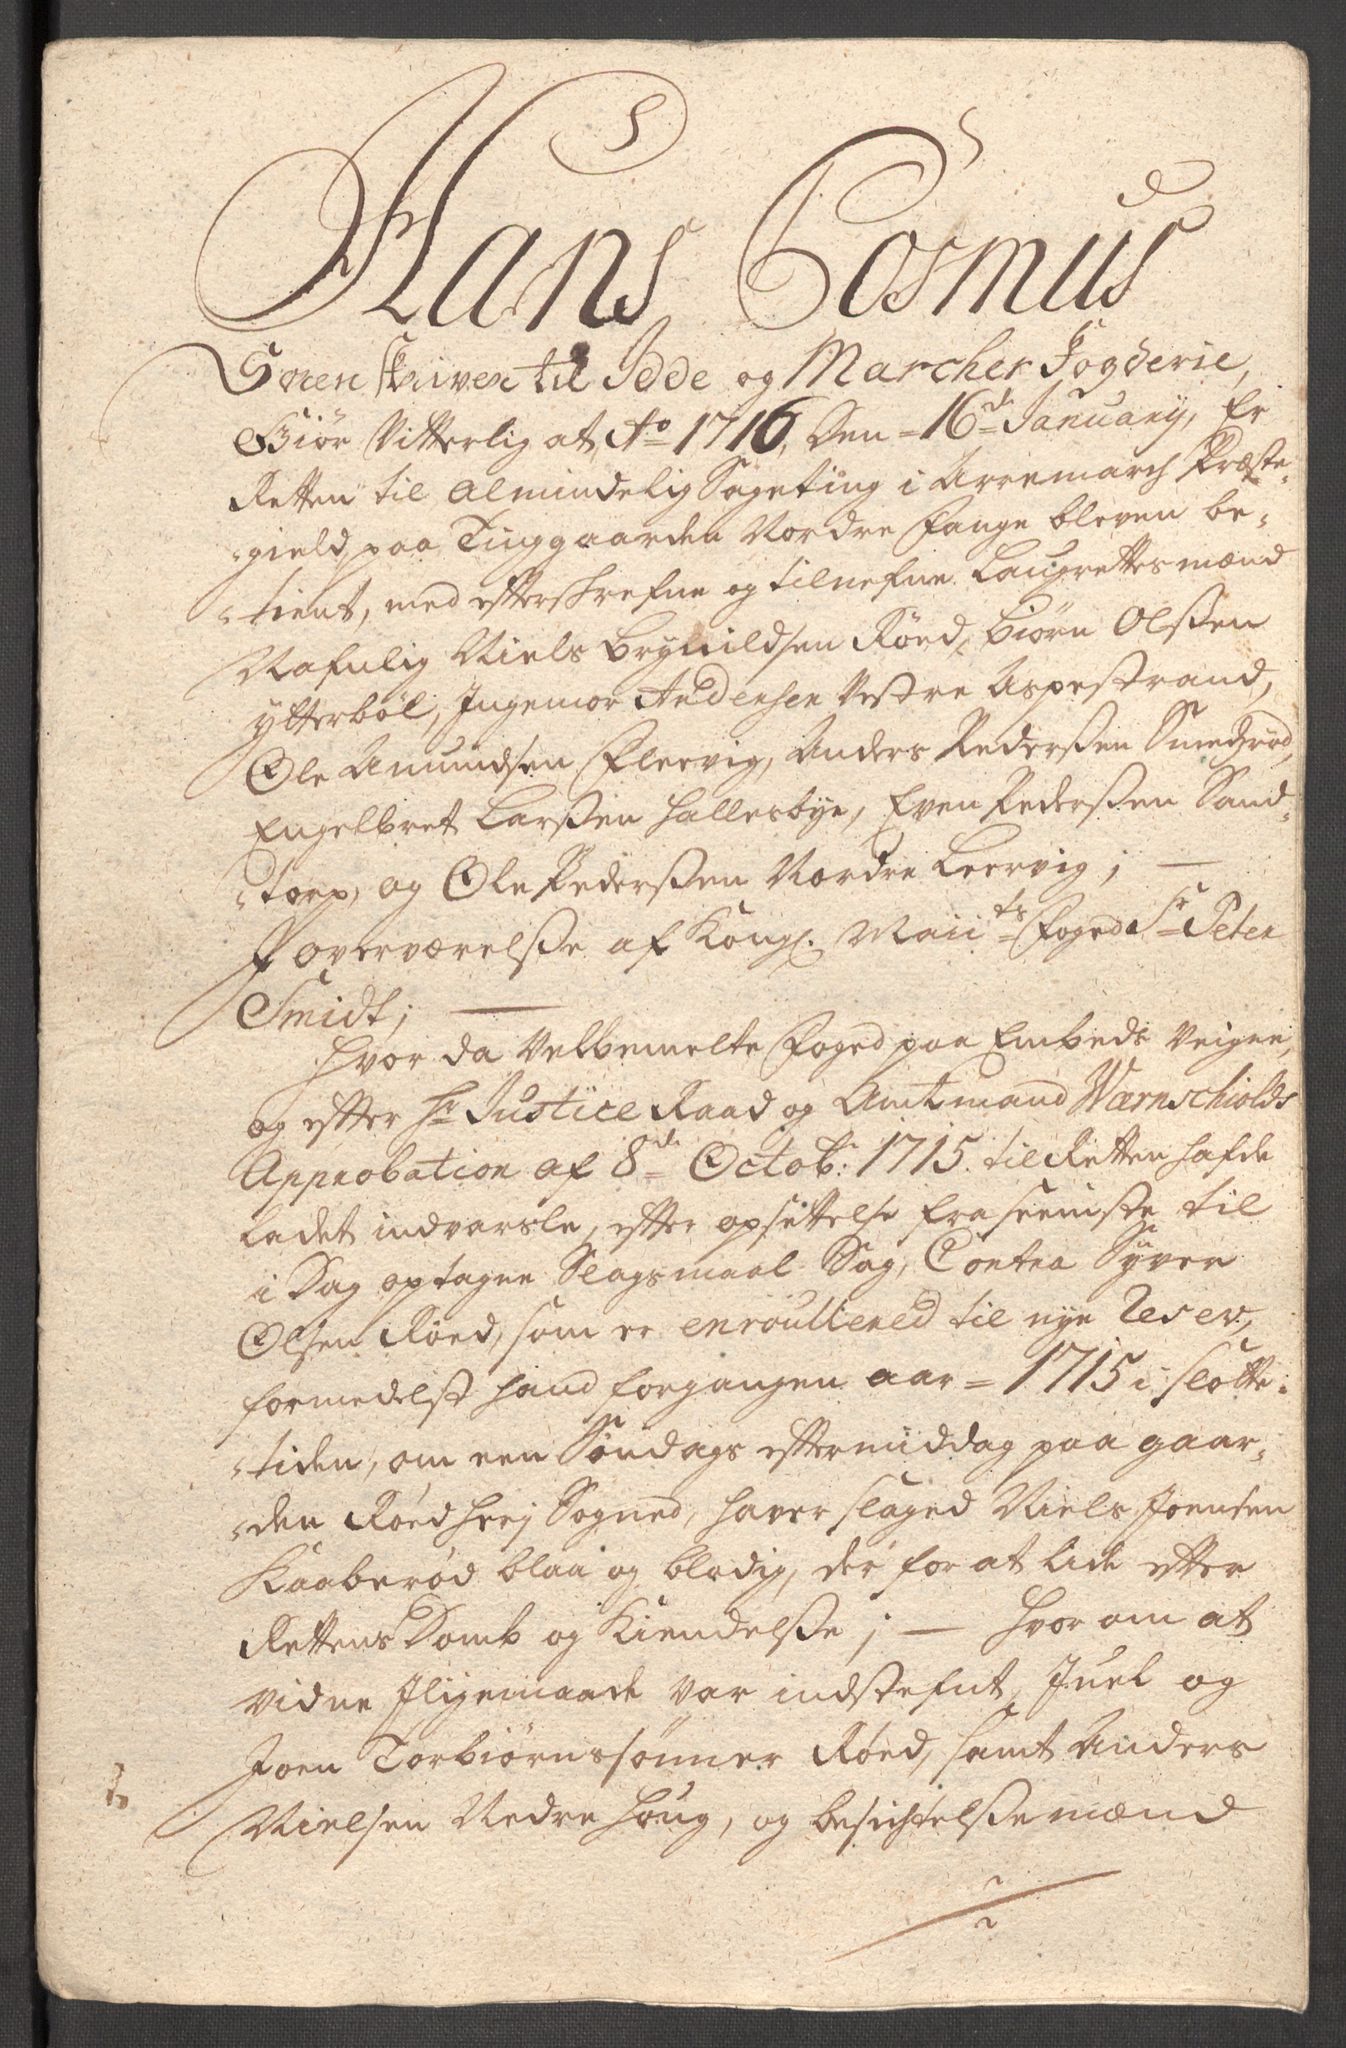 Hans Cosmus
Sorenskriver til Idde og Marcher Fogderie,
Giør Vitterlig at A:o 1716, den 16de January, Er
Retten til Almindelig Sageting i Arremarch Præste-
-gield, paa Tinggaarden Nordre Fange bleven be-
-tient, med efterskrefne og tilnefne Laugrettesmænd
Nafnlig Niels Brynildsen Røed, Biørn Olsen
ytterbøl, Ingemor Andersen Vestre Aspestrand,
Ole Amundsen Fleervig, Anders Pedersen Smedzrød,
Engelbret Larsen Hallesbye, Even Pedersen Sand-
-torp, og Ole Pedersen Nordre Leervig; —
J overværelse af Kongl. Maiits Foged Sr Peter
Smidt; —
Hvor da Velbemelte Foged paa Embeds Veigne,
og efter Hr Justice Raad og Amtmand Wærnschiolds
Approbation af 8de Octob: 1715. til Retten hafde
ladet indvarsle, efter opsettelse fra seeniste til
i Dag optagne Slagsmaal Sag, Contra Syver
Olsen Røed, som er enroullered til nye Reserv,
formedelst hand forgangen aar 1715 i Slotte-
-tiden, om een Søndags eftermiddag paa gaar-
-den Røed her j Sogned, haver slaged Niels Joensen
Kaaberød blaa og blodig, der for at lide efter
Rettens Domb og Kiendelse; — Hvor om at
vidne jligemaade var indstefnt, Juel og
Joen Torbiørnssønner Røed, samt Anders
Nielsen Nedre Houg, og besichtelsemænd